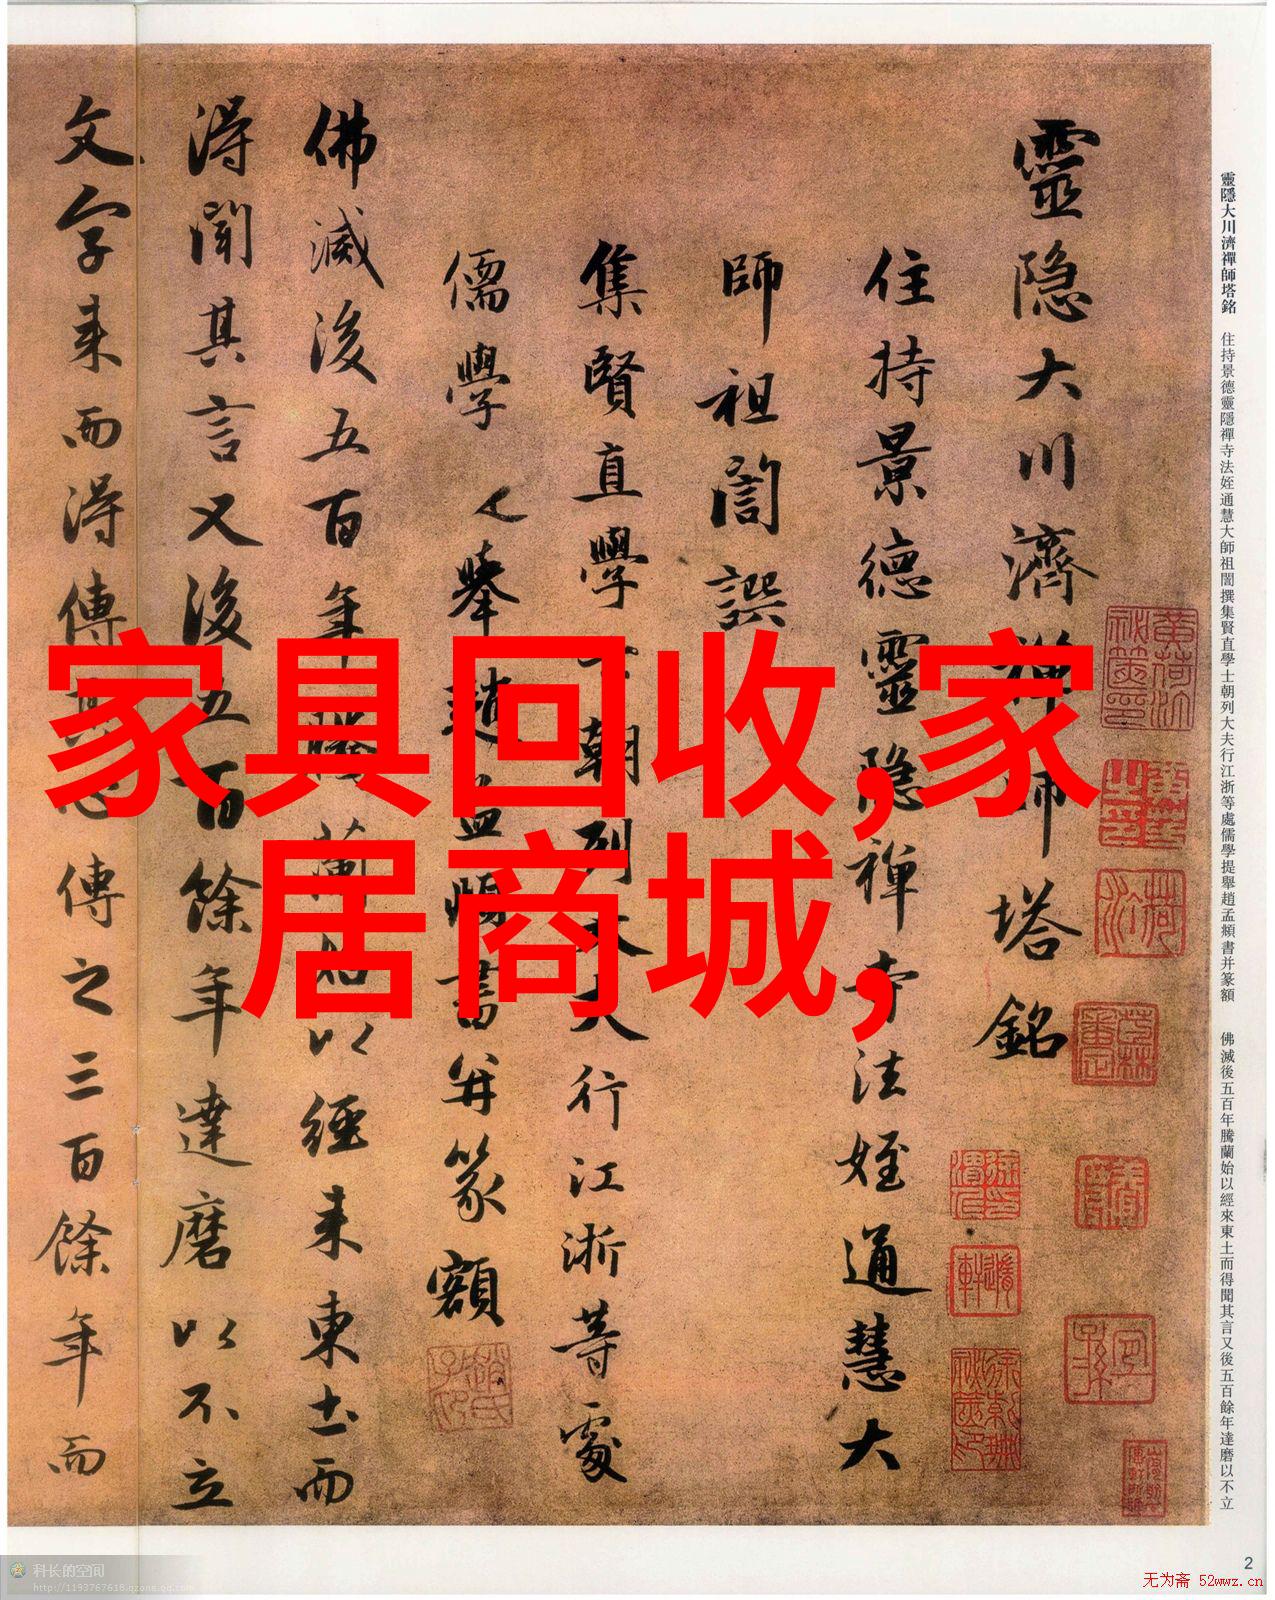 靈隐大川濟禅師塔銘
住持景德靈隐禅寺法姪通慧大
師祖誾譔
集賢直學士朝列大夫行江浙等處
儒學提舉趙孟頫書并篆額
佛滅後五百年騰蘭始以經来東土而
淂聞其言又後五百餘年達磨以不立
文字来而淂傳其心傳之三百餘年而
靈隱大川濟禪師塔銘 住持景德靈隱禪寺法姪通慧大師祖誾撰集賢直學士朝列大夫行江浙等處儒學提舉趙孟頫書并篆額 佛滅後五百年騰蘭始以經來東土而得聞其言又後五百餘年達磨以不立
家具回收,家
居商城,
科长的空间
http://1193767618.qzone.qq.com
2
无为斋 52wwz.cn